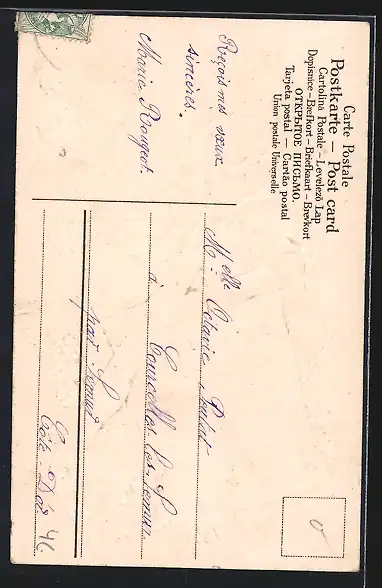 Carte Postale
Postkarte — Post card
Cartolina Postale — Levelező Lap
Dopisnice — Brefkort — Briefkaart — Brevkort
ОТКРЫТОЕ ПИСЬМО.
Tarjeta postal — Cartão postal
Union postale Universelle
Reçois mes vœux
sincères.
Marie Rouget.
Melle Octavie
à Courcelles-les-Semur
par Semur
Côte-D'or